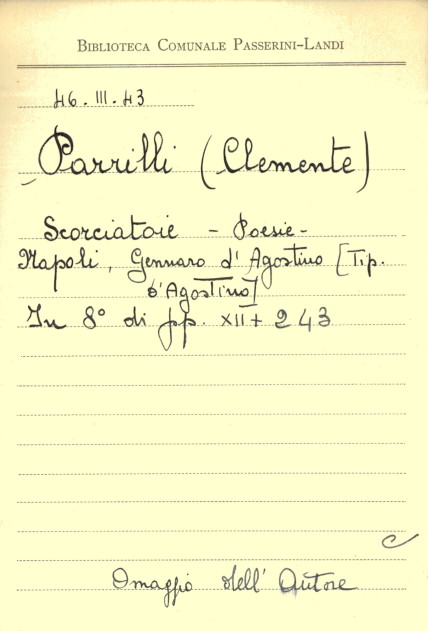 BIBLIOTECA COMUNALE PASSERINI-LANDI
46.III.43
Parrilli (Clemente)
Scorciatoie - Poesie -
Napoli, Gennaro d'Agostino [Tip.
D'Agostino]
In 8° di pp. XII + 243
Omaggio dell'Autore